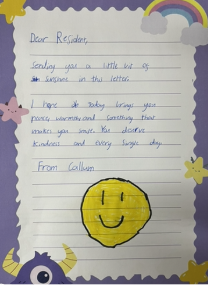 Dear Resident,
Sending you a little bit of
sunshine in this letter.
I hope today brings you
peace, warmth and something that
makes you smile. You deserve
kindness and every single day.
From Callum